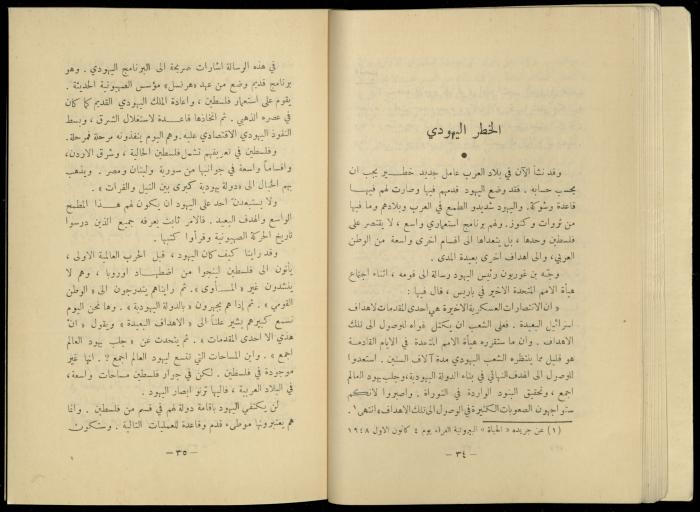 الخطر اليهودي
وقد نشأ الآن في بلاد العرب عامل جديد خطير يجب ان
يحسب حسابه . فقد وضع اليهود قدمهم فيها وصارت لهم فيها
قاعدة وشوكة . واليهود شديدو الطمع في العرب وبلادهم وما فيها
من ثروات وكنوز . ولهم برنامج استعماري واسع ، لا يقتصر على
فلسطين وحدها ، بل يتعداها الى اقسام اخرى واسعة من الوطن
العربي ، والى اهداف اخرى بعيدة المدى .
وجّه بن غوريون رئيس اليهود رسالة الى قومه ، اثناء اجتماع
هيأة الامم المتحدة الاخير في باريس ، قال فيها :
« ان الانتصارات العسكرية الاخيرة هي احدى المقدمات لاهداف
اسرائيل البعيدة . فعلى الشعب ان يكتل قواه للوصول الى تلك
الاهداف . وان ما ستقرره هيأة الامم المتحدة في الايام القادمة
هو قليل مما ينتظره الشعب اليهودي مدة آلاف السنين . استعدوا
للوصول الى الهدف النهائي في بناء الدولة اليهودية ، وجلب يهود العالم
اجمع ، وتحقيق البنود الواردة في التوراة . واصبروا لانكم
ستواجهون الصعوبات الكثيرة في الوصول الى تلك الاهداف » انتهى ١
(١) عن جريدة « الحياة » البيروتية الغراء يوم ٤ كانون الاول ١٩٤٨
— ٣٤ —
في هذه الرسالة اشارات صريحة الى البرنامج اليهودي . وهو
برنامج قديم وضع من عهد « هرتسل » مؤسس الصهيونية الحديثة .
يقوم على استعمار فلسطين ، واعادة الملك اليهودي القديم كما كان
في عصره الذهبي . ثم اتخاذها قاعدة لاستغلال الشرق ، وبسط
النفوذ اليهودي الاقتصادي عليه . وهم اليوم ينفذونه مرحلة فمرحلة .
وفلسطين في تعريفهم تشمل فلسطين الحالية ، وشرق الاردن ،
واقساماً واسعة في جوانبها من سورية ولبنان ومصر . ويذهب
بهم الخيال الى « دولة يهودية كبرى بين النيل والفرات » .
ولا يستبعدن احد على اليهود ان يكون لهم هذا المطمح
الواسع والهدف البعيد . فالامر ثابت يعرفه جميع الذين درسوا
تاريخ الحركة الصهيونية وقرأوا كتبها .
وقد رأينا كيف كان اليهود ، قبل الحرب العالمية الاولى ،
يأتون الى فلسطين لينجوا من اضطهاد اوروبا ، وهم لا
ينشدون غير « المأوى » . ثم رأيناهم يتدرجون الى « الوطن
القومي » . ثم إذا هم يجهرون « بالدولة اليهودية » . وها نحن اليوم
نسمع كبيرهم يشير علناً الى « الاهداف البعيدة » ويقول « ان
هذي الا احدى المقدمات » . ثم يتحدث عن « جلب يهود العالم
اجمع » . واين المساحات التي تسع ليهود العالم اجمع ؟ . انها غير
موجودة في فلسطين . لكن في جوار فلسطين مساحات واسعة ،
في البلاد العربية ، فاليها ترنو ابصار اليهود .
لن يكتفي اليهود باقامة دولة لهم في قسم من فلسطين . وانما
هم يعتبرونها موطىء قدم وقاعدة للعمليات التالية . وستكون
— ٣٥ —